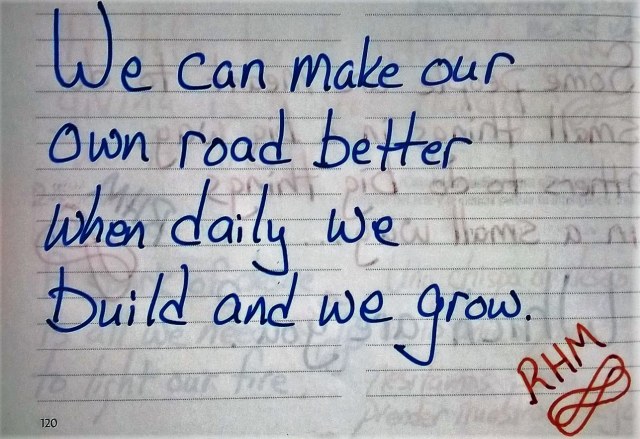 We can make our
own road better
when daily we
build and we grow.
RHM
120